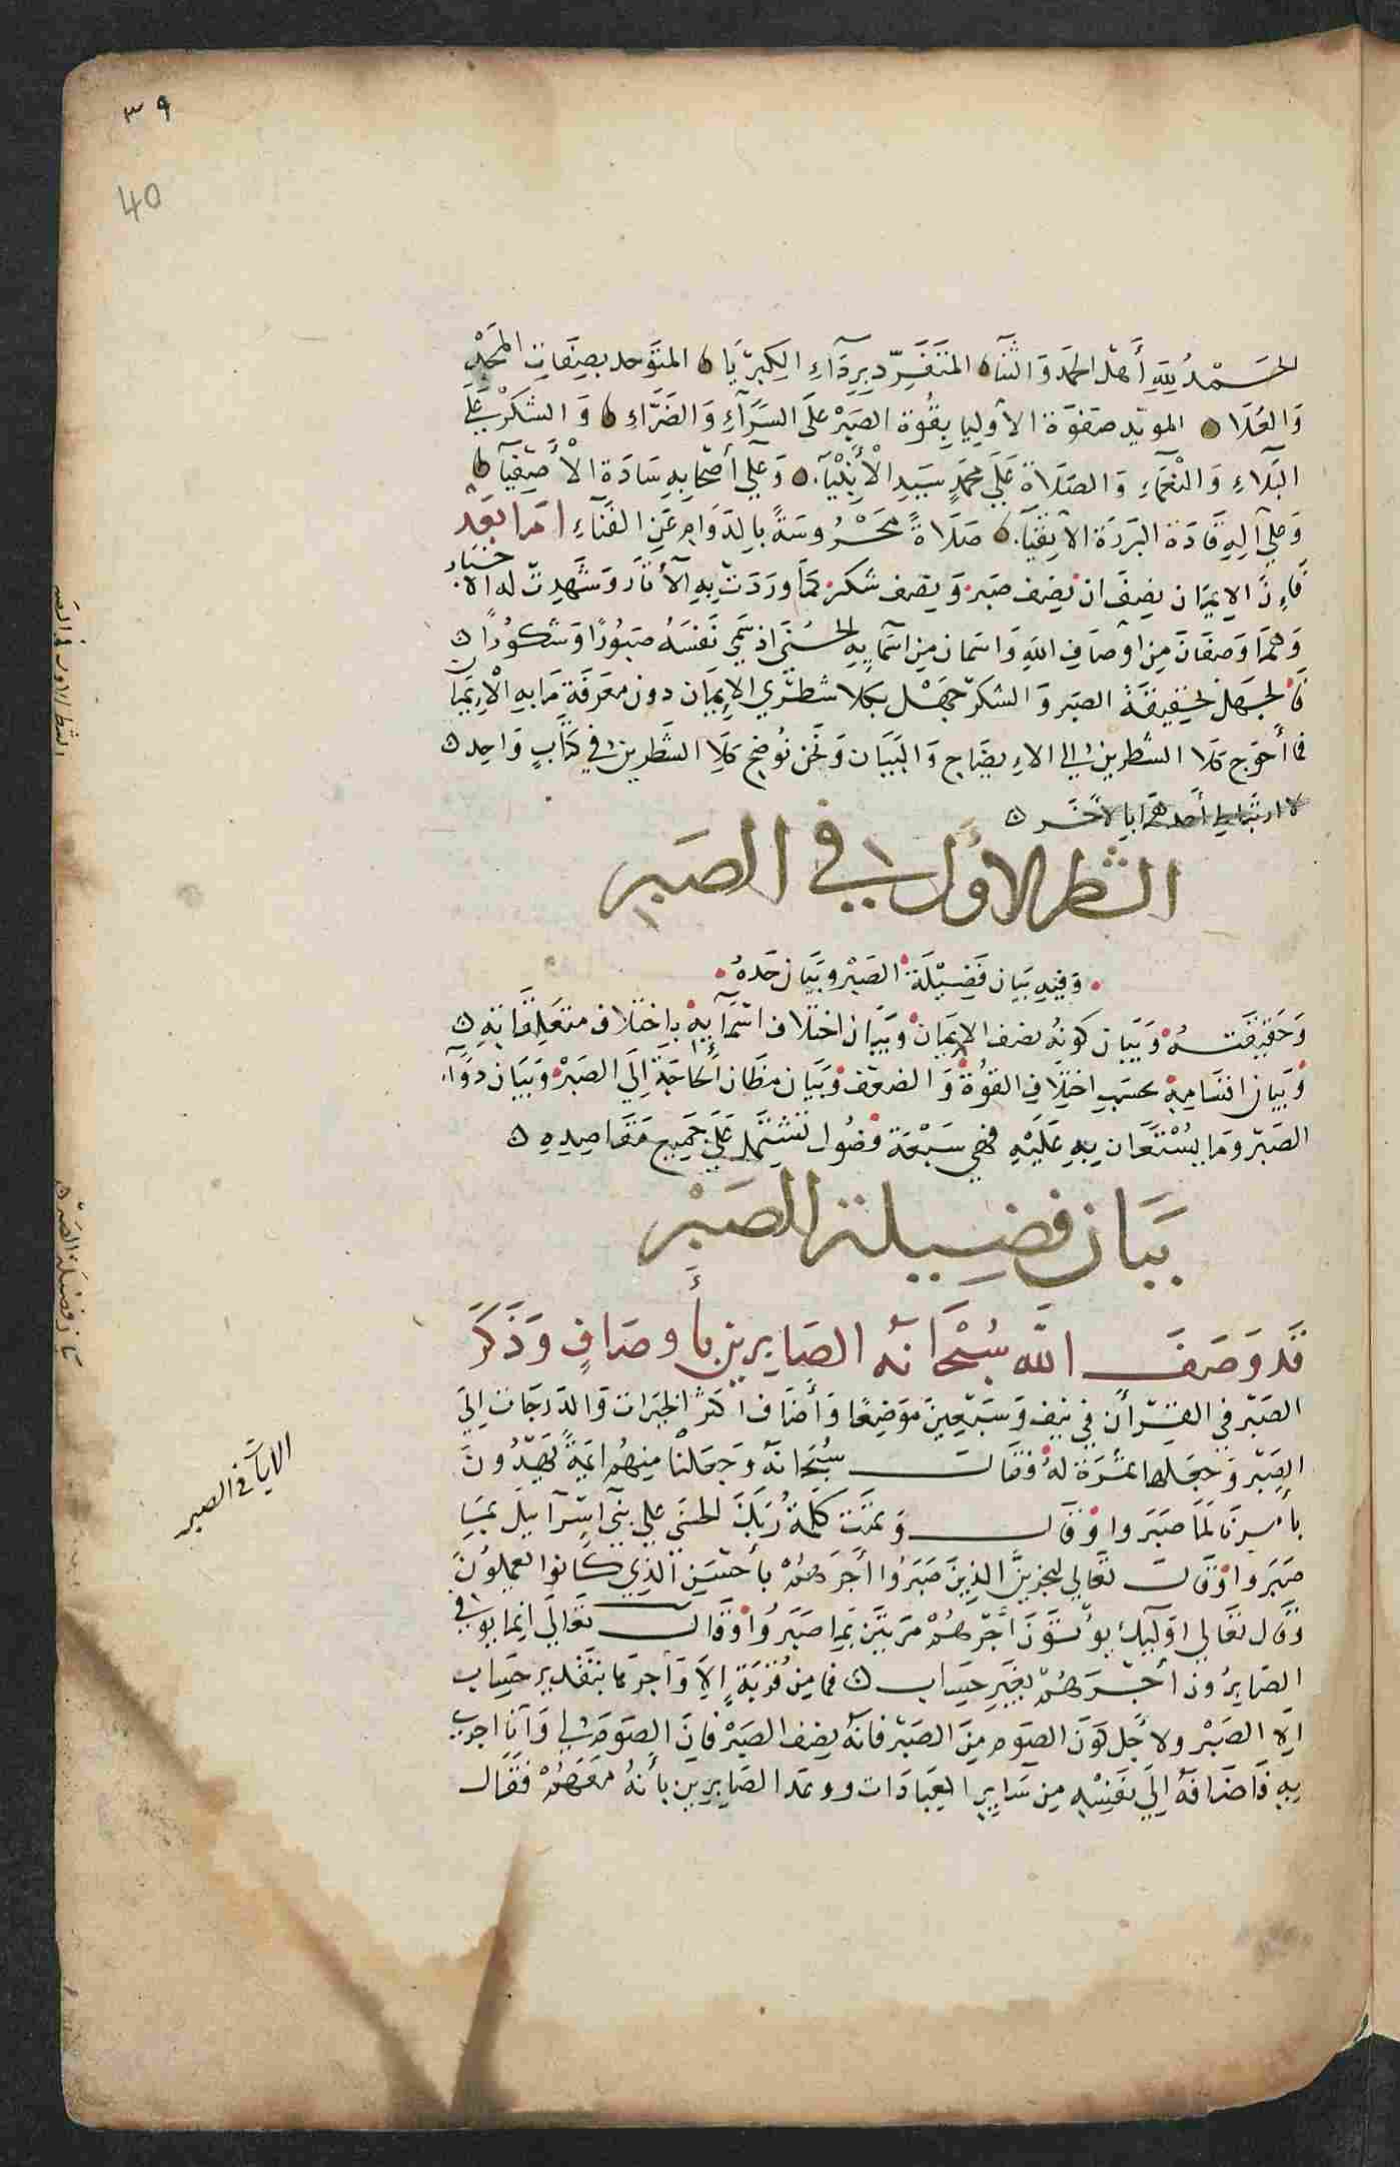 ٣٩
40
الحَمْدُ لِلّهِ أَهْل الحَمد وَالثَنَآء المتَفَرِّد بِرِدَآءِ الكِبرِيَا المتَوَحد بصِفَات المَجْد
وَالعُلَا المويّد صَفوَة الأولِيا بِقُوة الصَبْر علَى السَرَآءِ وَالضَرَّاءِ وَالشكْر عَلَى
البَلَاءِ وَالنَعْمَاءِ وَالصَلاة عَلَي مُحَمَدٍ سَيدِ الْأَنْبِيَآء وَعَلي أصْحَابِهِ سَادَة الأَصْفِيَآ
وَعلي آلِهِ قَادَة البَرَرَة الأتقِيَآء صَلَاةً مَحْرُوسَةً بِالدَوَامِ عَنِ الفَنَآءِ امّا بَعْد
فَإِنَّ الإيمَان نِصْفَان نِصْف صَبر وَنِصف شكر كمَا وَرَدَتْ بِهِ الآثار وَشَهِدتْ له الاخبَار
وَهُمَا وَصفَان مِن اوصَافِ اللهِ وَاسمان مِن اسمَآيِهِ الحُسْنَى اذ سَمَّي نَفسَهُ صَبُورًا وَشكُورًا
فالجَهل بحَقِيقَة الصَبر وَالشكر جَهْل بكلا شطْري الإيمَان دون معَرفَةِ مَا بِهِ الإيمَان
فما أحوَج كلا الشطرين الي الإيضَاح وَالبَيَان وَنَحن نُوضح كلا الشَطرين في كتَابٍ وَاحِد
لارتبَاط أحَدهمَا بالآخَر
الشطر الأول في الصَبر
وَفِيهِ بَيَان فَضِيْلَة الصَبْر وبَيَان حَدهُ
وَحَقِيقَتهُ وَبَيَان كونهُ نصف الإيمَان وَبيَان اختلاف اسْمَآيِهِ باختلاف متعَلقَاتِهِ
وَبَيَان اقسَامِهِ بحسَبِ اختِلافِ القُوَّة وَالضعْف وَبَيَان مظَان الحَاجَة إِلَي الصَبْر وَبَيَان دوَآء
الصَبْر وَمَا يُسْتَعَان بِهِ عَلَيْهِ فهي سَبْعَة فصُول تَشتَمِل عَلَي جَمِيع مَقَاصِدِهِ
بَيَان فضِيلة الصَبْر
قَد وَصَفَ الله سُبْحَانَهُ الصَابِرِين بأوصَافٍ وَذَكَرَ
الصَبْر في القرْأن في نيف وَسَبْعِينَ مَوضِعًا وَأضَاف اكثر الخيرَات وَالدَرَجَات إلَيَ
الصَبْر وَجعَلها ثمْرَة لهُ فقَال سُبْحَانَهُ وَجَعَلْنَا مِنهُم ايمَةً يَهْدُونَ
بأمرنَا لَمَا صَبَروا وَقَال وَتمَتْ كَلِمَةُ رَبِّكَ الحُسنَي عَلي بَنِي اسْرَآيِيلَ بمَا
صَبَروا وَقَال تعَالي لنجزينَّ الذِينَ صَبَرُوا أجْرَهُمْ بأحسَنِ الذِي كَانوا يَعمَلُونَ
وَقَال تعَالي اولَيِكَ يُؤتَوْنَ أجْرَهُمْ مَرتَيْن بِمَا صَبَرُوا وَقَال تَعَالَي انمَا يوَفي
الصَابِرُون أجْرَهُمْ بِغَيْرِ حِسَاب فمَا مِن قُرْبَةٍ إلا وَأجرهَا بتَقْدِير حِسَاب
الا الصَبْر ولأجْل كَوْنَ الصَوم مِنَ الصَبْر فانَهُ نصْف الصَبْر فان الصَوم لي وَأنا اجزي
بِهِ فَاضَافَهُ الَي نَفْسِهِ مِن سَايرِ العِبَادَات ووعَد الصَابِرين بأنَهُ مَعَهُمْ فَقَال
الشطر الاول في الصَبر
بيان فضيلة الصَبر
الايات في الصبر